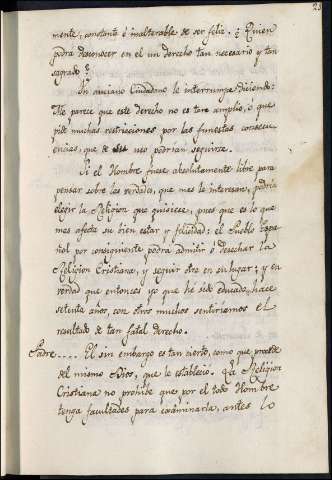 23
mente, constante é inalterable de ser feliz. ¿Quien
podra desconocer en el un derecho tan necesario y tan
sagrado?
Un anciano Ciudadano le interrumpe diciendo:
Me parece que este derecho no es tan amplio, ó que
pide muchas restricciones por las funestas consecu-
encias, que de su uso podrian seguirse.
Si el Hombre fuese absolutamente libre para
pensar sobre las verdades, que mas le interesan, podria
elegir la Religion que quisiese, pues que es lo que
mas afecta su bien estar y felicidad: el Pueblo Espa-
ñol por consiguiente podra admitir ó desechar la
Religion Cristiana, y seguir otra en su lugar; y en
verdad que entonces yo que hé sido educado, hace
setenta años, con otros muchos sentiriamos el
resultado de tan fatal derecho.
Padre..... El sin embargo es tan cierto, como que procede
del mismo Dios, que le establecio. La Religion
Cristiana no prohibe que por el todo Hombre
tenga facultades para examinarla, antes lo